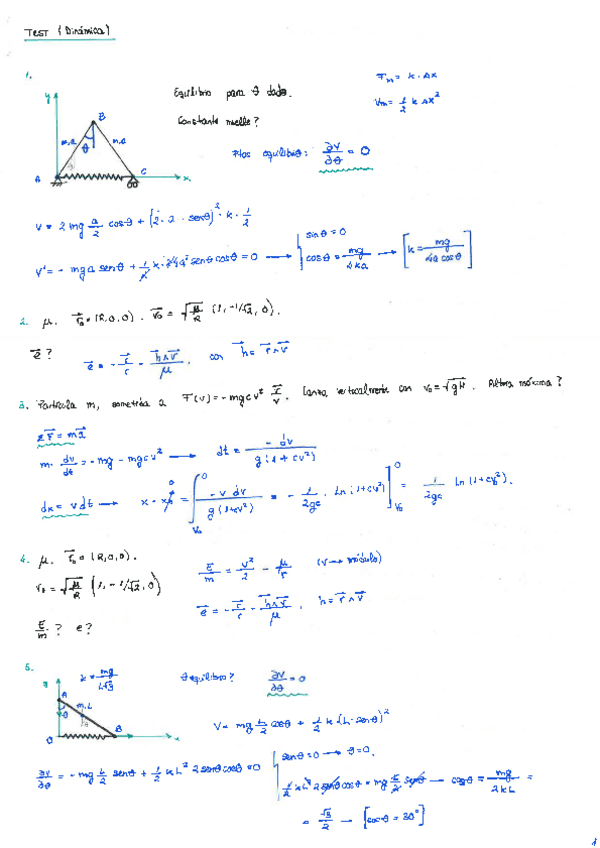 TEST (Dinámica)
1.
Equilibrio para θ dado.
Fm = k · Δx
Constante muelle?
Vm = 1/2 k Δx²
y
B
θ
m,a
m,a
A
C
x
Ptos equilibrio: ∂V/∂θ = 0
V = 2 mg a/2 cosθ + (2 · a · senθ)² · k · 1/2
sinθ = 0
V' = - mga senθ + 1/2 k · 2·4a² senθ cosθ = 0 → cosθ = mg/4ka → [k = mg/4a cosθ]
2. μ. r₀ = (R,0,0) . v₀ = √(μ/R) (1, -1/√2, 0).
e? e = - r/r - h∧v/μ , con h = r∧v
3. Partícula m, sometida a F(v) = - mgcv² v/v . Lanza verticalmente con v₀ = √gH . Altura máxima?
ΣF = ma
m · dv/dt = - mg - mgcv² → dt = - dv/g(1+cv²)
dx = v dt → x - x₀ = ∫ -v dv/g(1+cv²) = - 1/2gc · Ln(1+cv²)] = 1/2gc Ln(1+cv₀²).
4. μ. r₀ = (R,0,0).
E/m = v²/2 - μ/r (v → módulo)
v₀ = √(μ/R) (1, -1/√2, 0)
e = - r/r - h∧v/μ , h = r∧v
E/m? e?
5.
k = mg/L√3
θ equilibrio? ∂V/∂θ = 0
A
θ
m,L
B
0
x
V = mg L/2 cosθ + 1/2 k (L · senθ)²
senθ = 0 → θ = 0.
∂V/∂θ = - mg L/2 senθ + 1/2 kL² 2 senθ cosθ = 0
1/2 kL² 2 senθ cosθ = mg L/2 senθ → cosθ = mg/2kL =
= √3/2 → [cosθ = 30°]
1